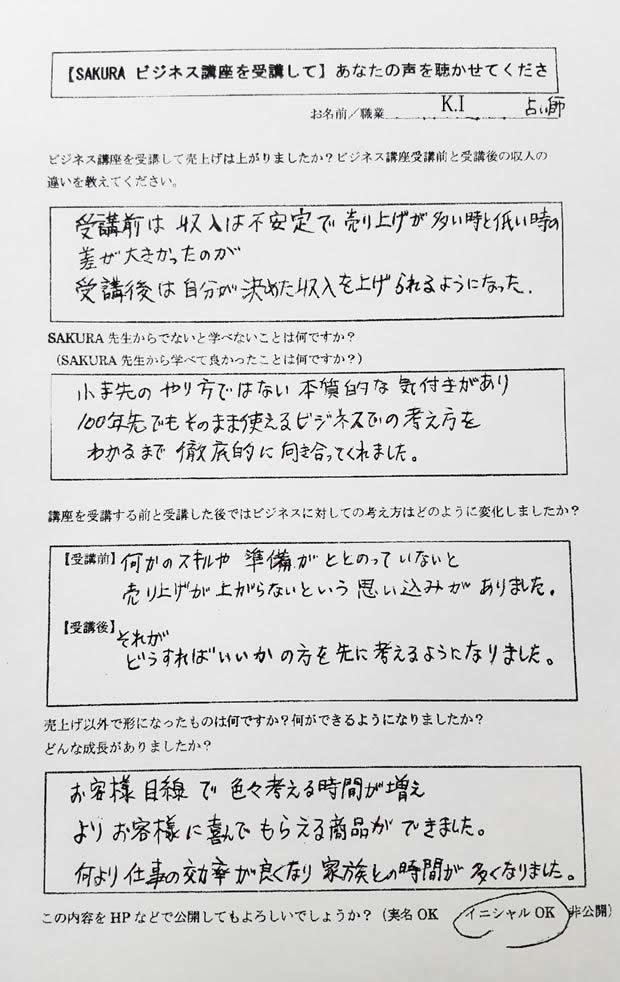 【SAKURA ビジネス講座を受講して】あなたの声を聴かせてくださ
お名前／職業 K.I 占い師
ビジネス講座を受講して売上げは上がりましたか？ビジネス講座受講前と受講後の収入の
違いを教えてください。
受講前は収入は不安定で売り上げが多い時と低い時の
差が大きかったのが
受講後は自分が決めた収入を上げられるようになった.
SAKURA 先生からでないと学べないことは何ですか？
（SAKURA 先生から学べて良かったことは何ですか？）
小手先のやり方ではない本質的な気付きがあり
100年先でもそのまま使えるビジネスでの考え方を
わかるまで徹底的に向き合ってくれました。
講座を受講する前と受講した後ではビジネスに対しての考え方はどのように変化しましたか？
【受講前】何かのスキルや準備がととのっていないと
売り上げが上がらないという思い込みがありました。
【受講後】それが
どうすればいいかの方を先に考えるようになりました。
売上げ以外で形になったものは何ですか？何ができるようになりましたか？
どんな成長がありましたか？
お客様目線で色々考える時間が増え
よりお客様に喜んでもらえる商品ができました。
何より仕事の効率が良くなり家族との時間が多くなりました。
この内容を HP などで公開してもよろしいでしょうか？（実名 OK イニシャル OK 非公開）